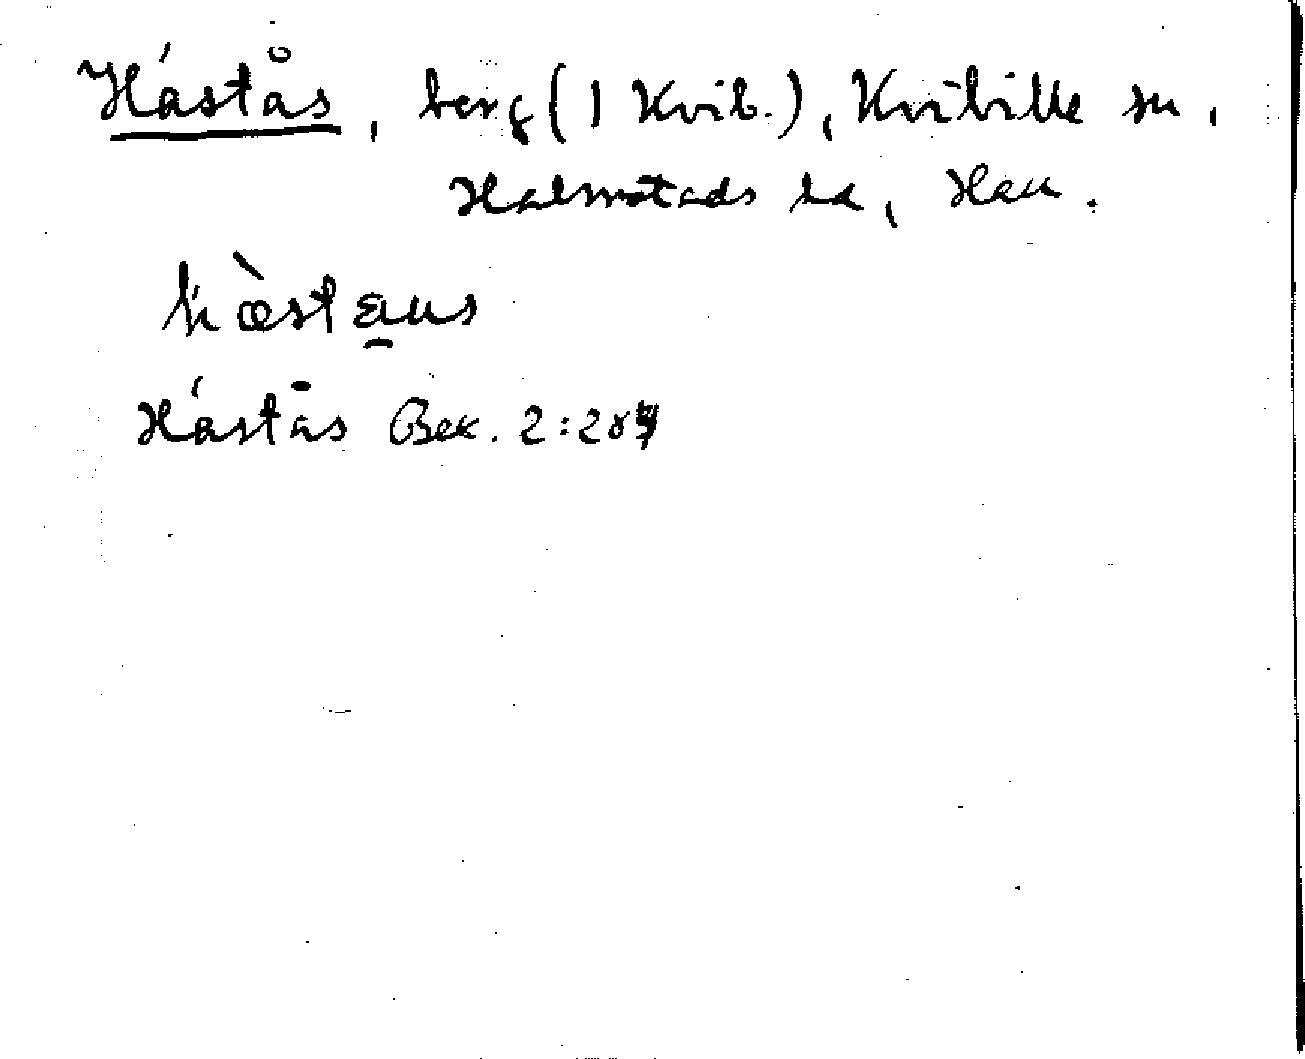 Hástås, berg (1 Kvib.), Kvibille sn,
Halmstads hd, Hall.
hæ̀stau̯s
Hástås Bex. 2: